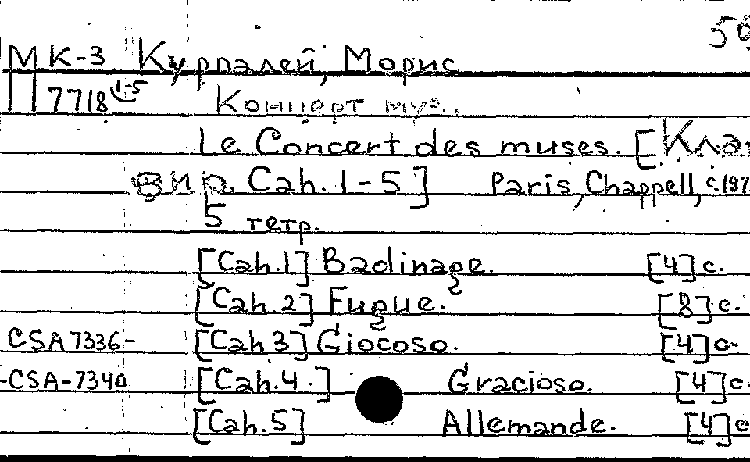 50
МК-3 Курпалей, Морис
П 7718 1-5 Концерт муз..
Le Concert des muses. [Кла
вир. Cah. 1-5] Paris, Chappell, c.187
5 тетр.
[Cah.1] Badinage. [4] с.
[Cah.2] Fugue. [8] с.
CSA7336- [Cah.3] Giocoso. [4] с.
-CSA-7340 [Cah.4.] Gracioso. [4] с.
[Cah.5] Allemande. [4] с